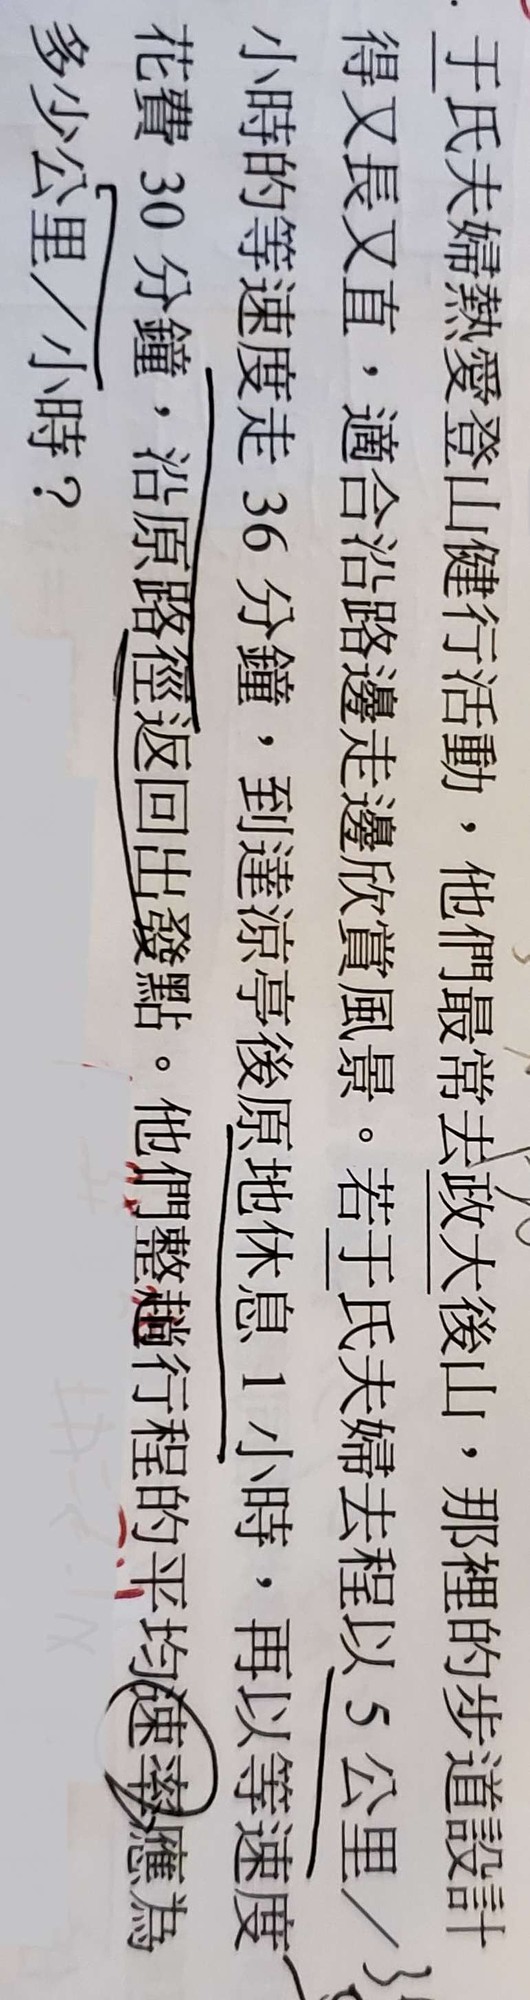 于氏夫婦熱愛登山健行活動，他們最常去政大後山，那裡的步道設計
得又長又直，適合沿路邊走邊欣賞風景。若于氏夫婦去程以 5 公里／
小時的等速度走 36 分鐘，到達涼亭後原地休息 1 小時，再以等速度
花費 30 分鐘，沿原路徑返回出發點。他們整趟行程的平均速率應為
多少公里／小時？